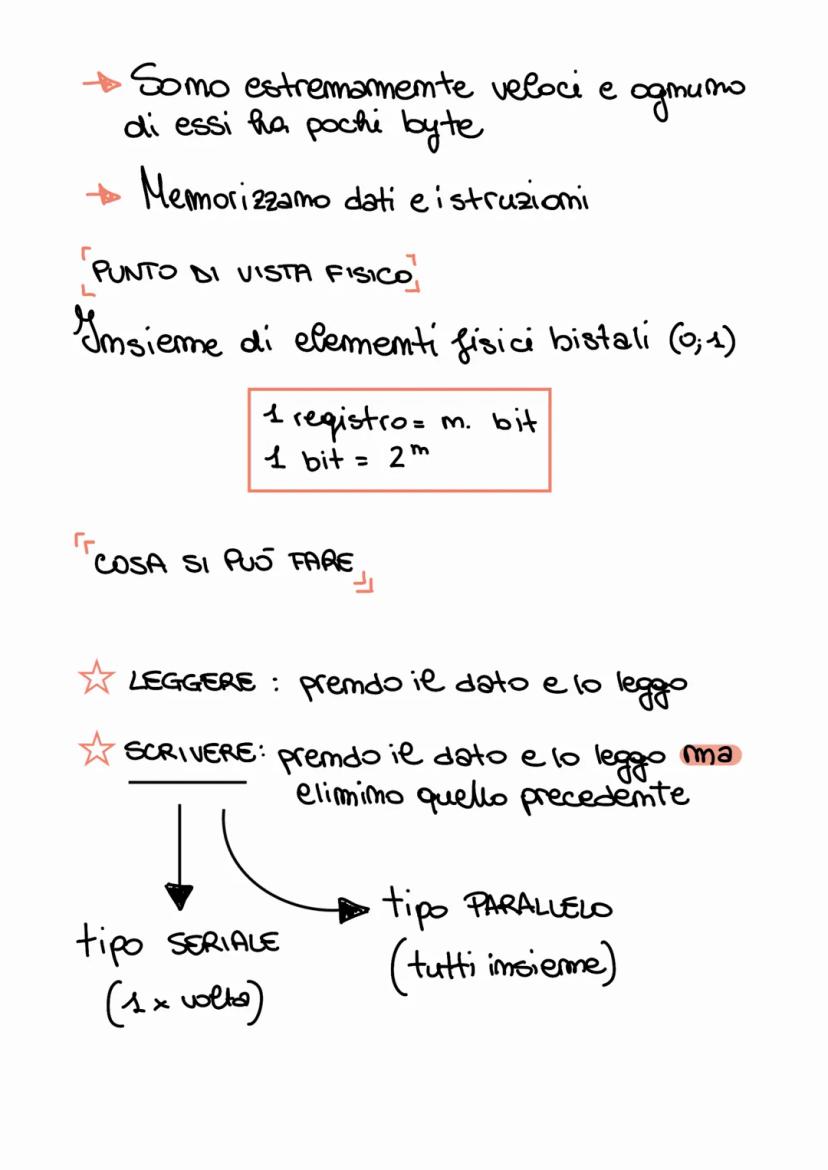 → Sono estremamente veloci e ognuno
di essi ha pochi byte
→ Memorizzano dati e istruzioni
PUNTO DI VISTA FISICO
Insieme di elementi fisici bistali (0;1)
1 registro = n. bit
1 bit = 2ⁿ
COSA SI PUÒ FARE
☆ LEGGERE : prendo il dato e lo leggo
☆ SCRIVERE: prendo il dato e lo leggo ma
elimino quello precedente
tipo PARALLELO
(tutti insieme)
tipo SERIALE
(1 x volta)